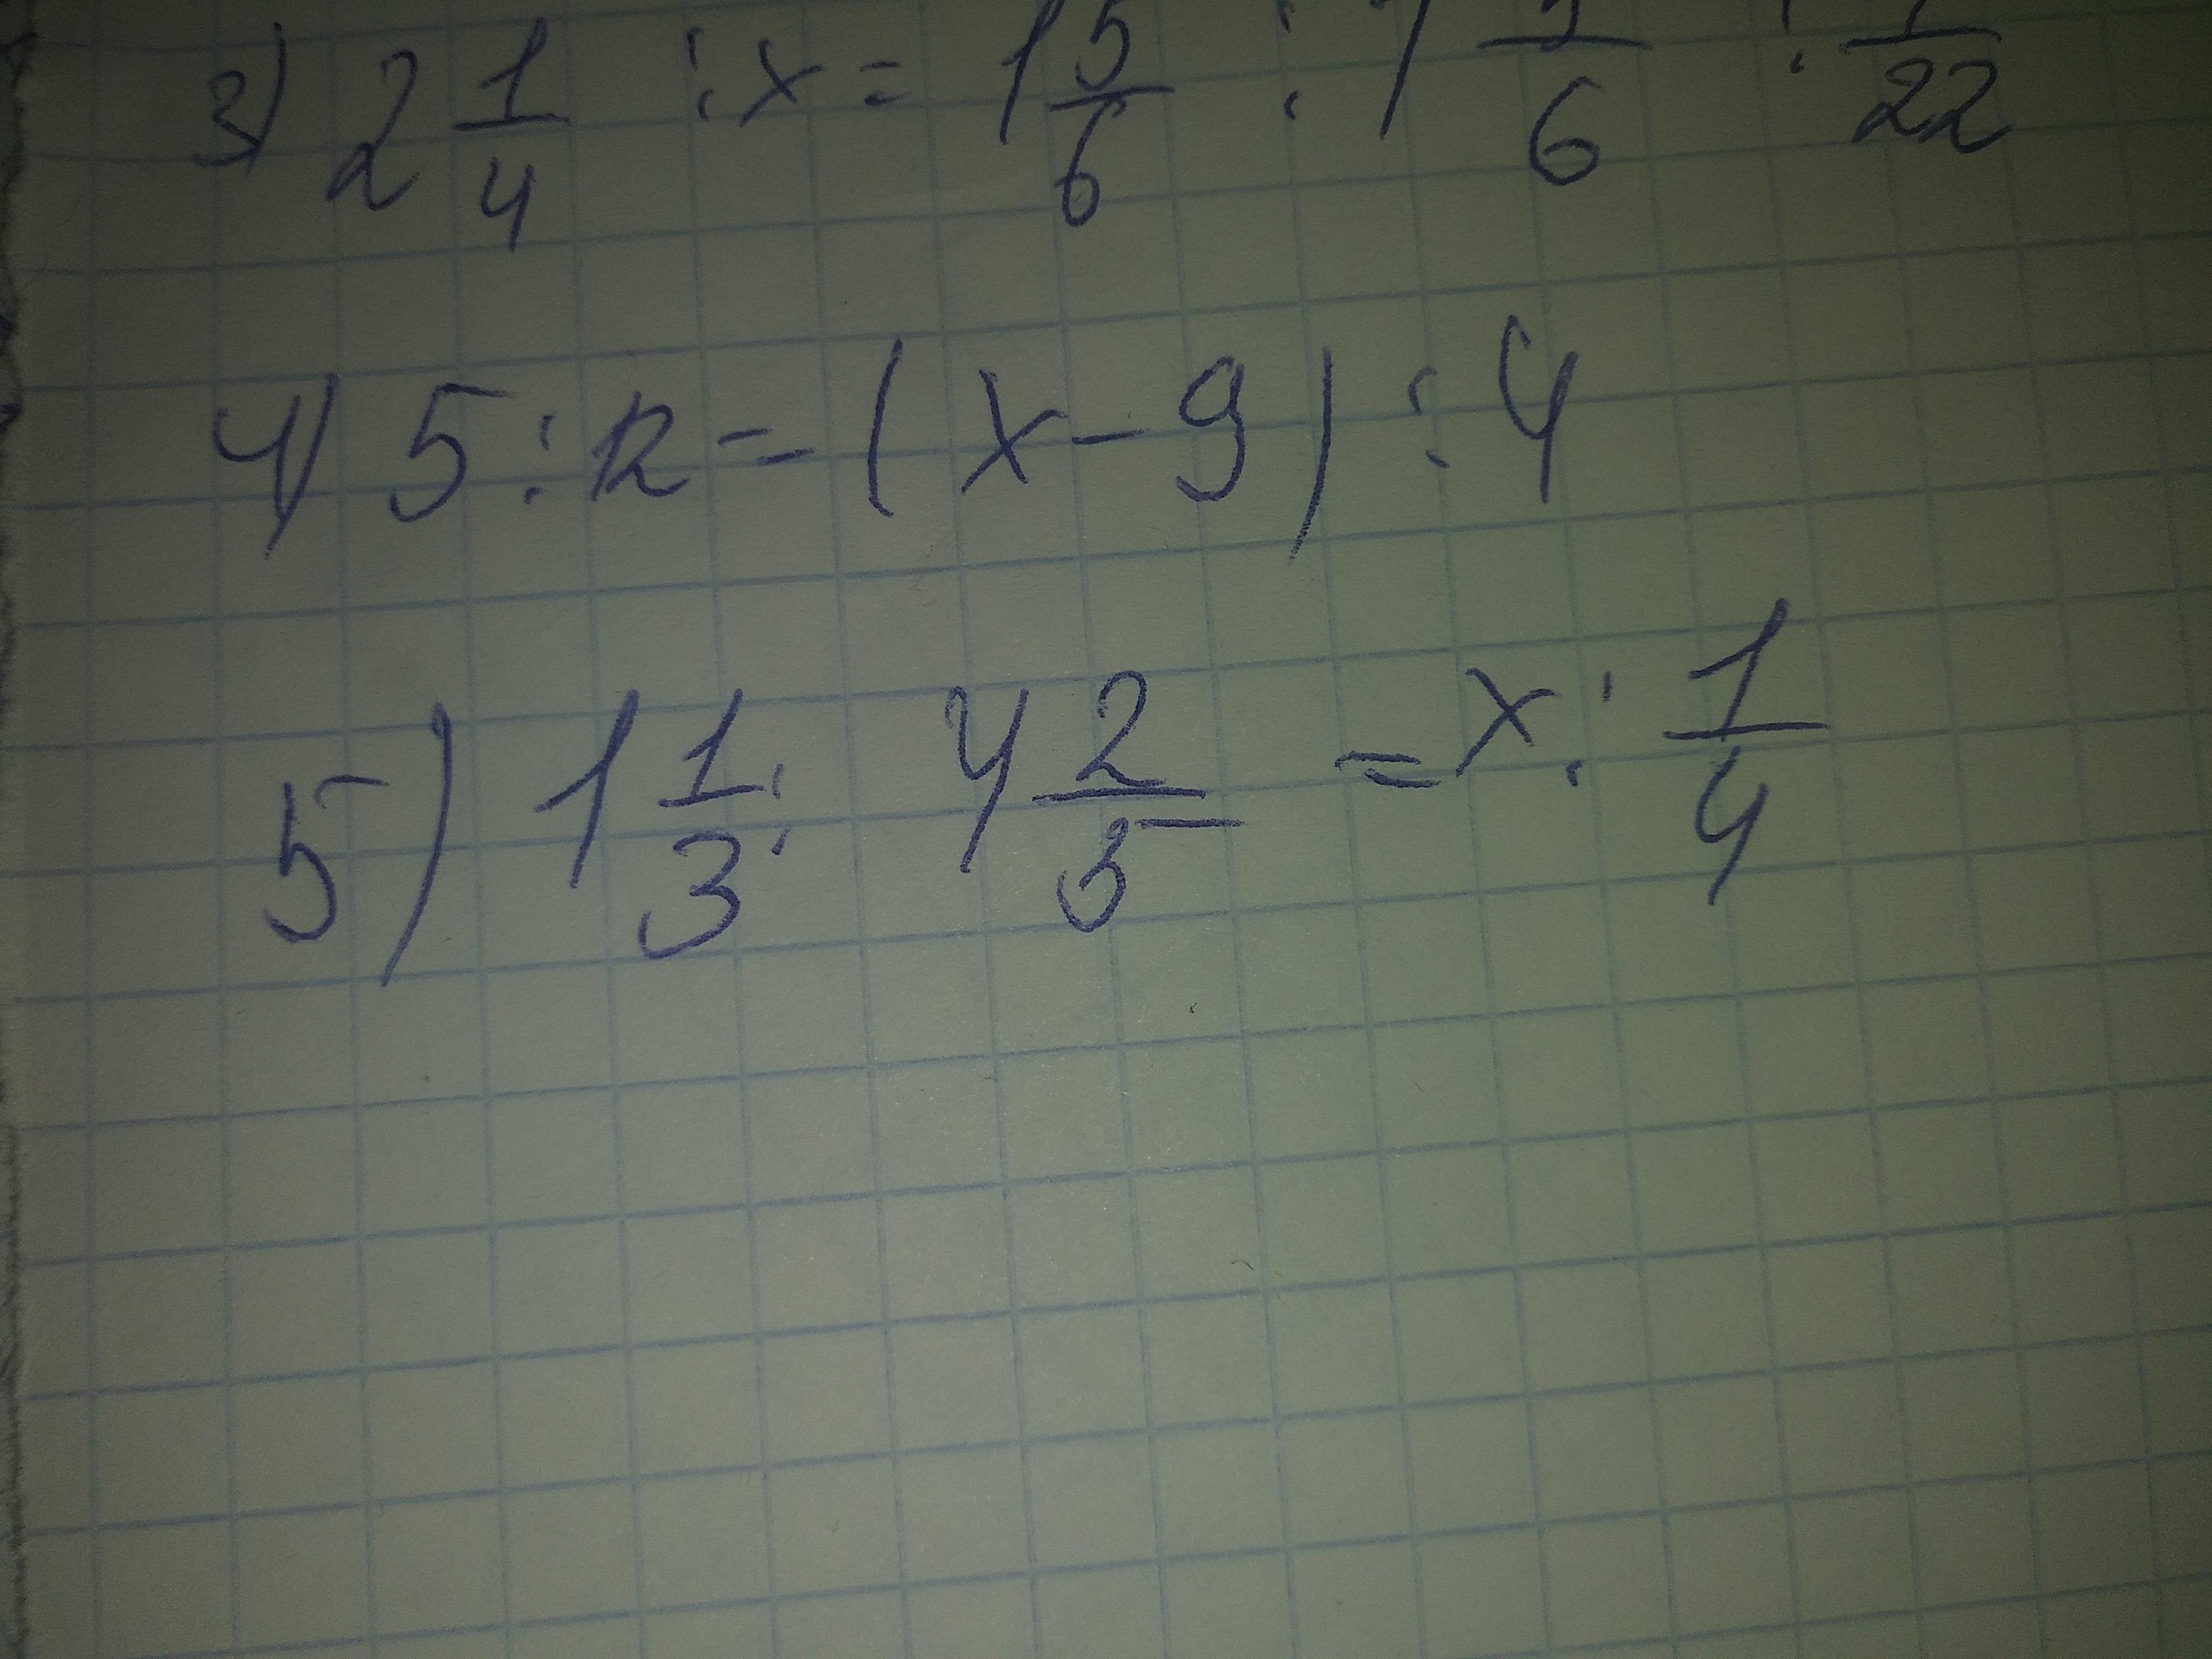 3) 2 1/4 : x = 1 5/6 : 1 /6 : 1/22
4) 5 : 12 = (x - 9) : 4
5) 1 1/3 : 4 2/5 = x : 1/4